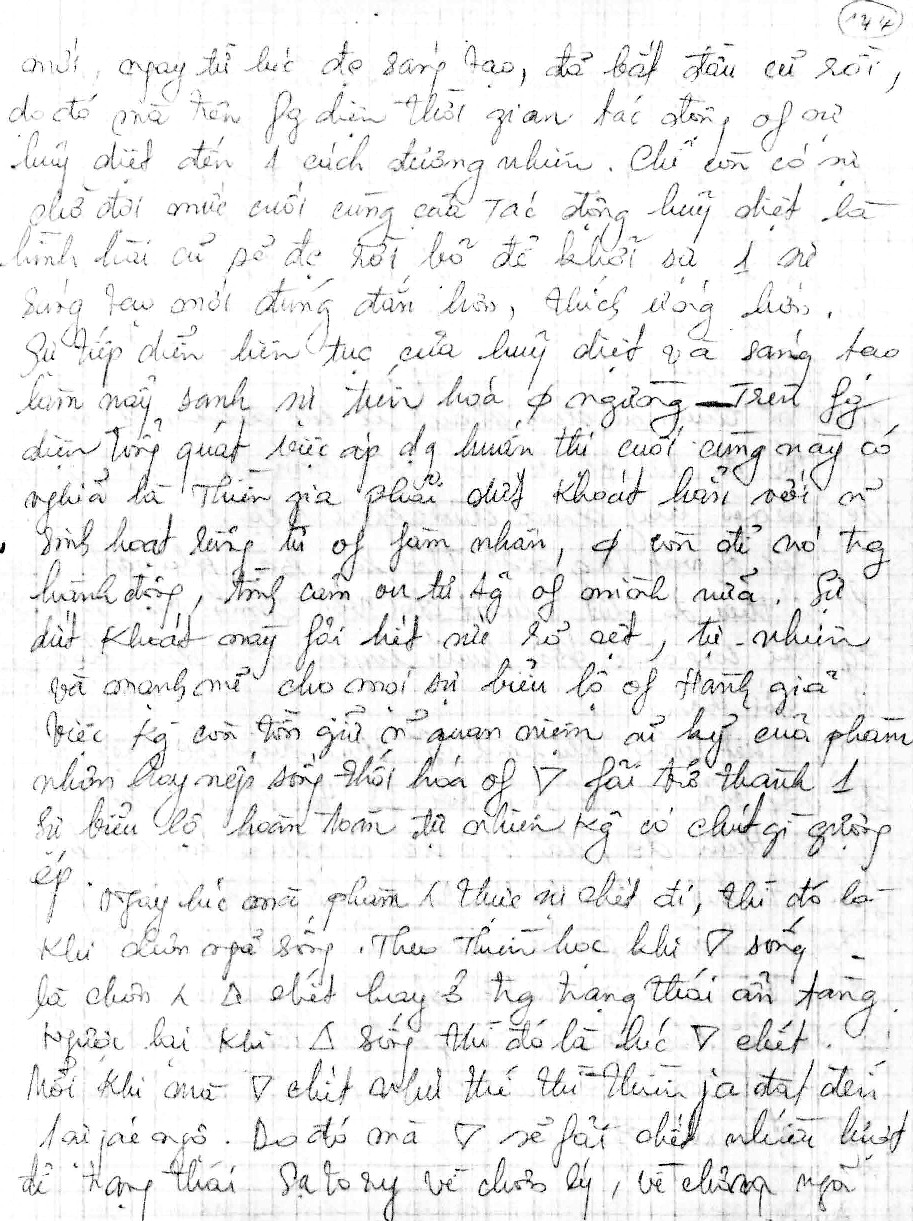 144
mới, ngay từ lúc đc sáng tạo, đã bắt đầu cũ rồi,
do đó mà trên fg diện thời gian tác động of sự
huỷ diệt đến 1 cách đương nhiên. Chỉ còn có sự
chờ đợi mức cuối cùng của Tác động huỷ diệt là
hình hài cũ sẽ đc rời bỏ để khởi sự 1 sự
sáng tạo mới đúng đắn hơn, thích ứng hơn.
Sự tiếp diễn liên tục của huỷ diệt và sáng tạo
làm nảy sanh sự tiến hoá φ ngừng – Trên fg
diện tổng quát việc áp dg huấn thị cuối cùng này có
nghĩa là Thiền gia phải dứt khoát hẳn với n~
sinh hoạt sống tử of fàm nhân, φ còn để nó tṛg
hành động, tình cảm or tư tg~ of mình nữa. Sự
dứt khoát này fải hết sức rõ rệt, tự nhiên
và mạnh mẽ cho mọi sự biểu lộ of Hành giả.
Việc Kg còn tồn giữ n~ quan niệm cũ kỹ của phàm
nhân hay nếp sống thối hoá of ▽ fải trở thành 1
sự biểu lộ hoàn toàn tự nhiên Kg có chút gì gượng
ép.
Ngay lúc mà phàm ʌ thực sự chết đi, thì đó là
Khi chơn ngã sống. Theo Thiền học khi ▽ sống
là chơn ʌ △ chết hay ở tṛg trạng thái ẩn tàng.
Ngược lại Khi △ sống thì đó là lúc ▽ chết.
Mỗi Khi mà ▽ chết như thế thì Thiền ja đạt đến
1 sự jác ngộ. Do đó mà ▽ sẽ fải chết nhiều lượt
để trạng thái Satory về chơn lý, về chơn ngã